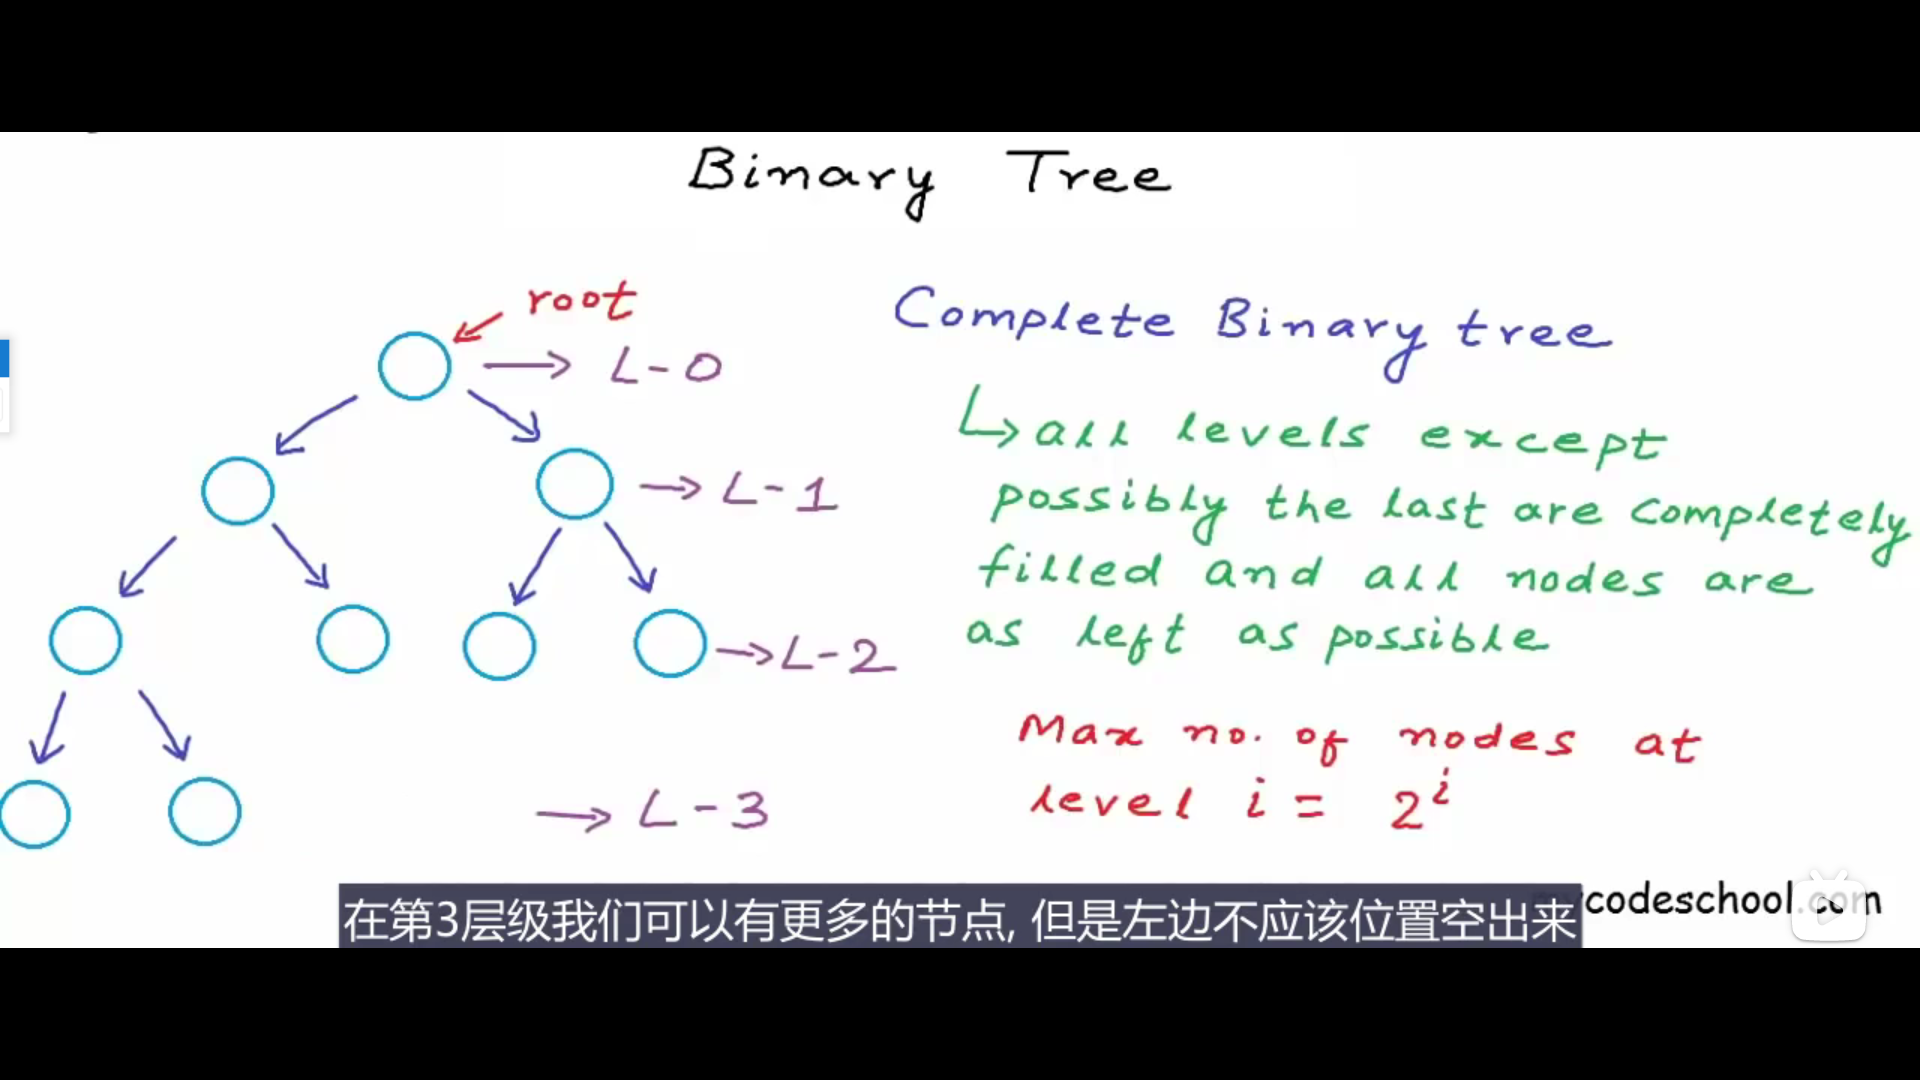 Binary Tree
root
L-0
L-1
L-2
L-3
Complete Binary tree
all levels except
possibly the last are completely
filled and all nodes are
as left as possible
Max no. of nodes at
level i = 2^i
在第3层级我们可以有更多的节点, 但是左边不应该位置空出来
mycodeschool.com